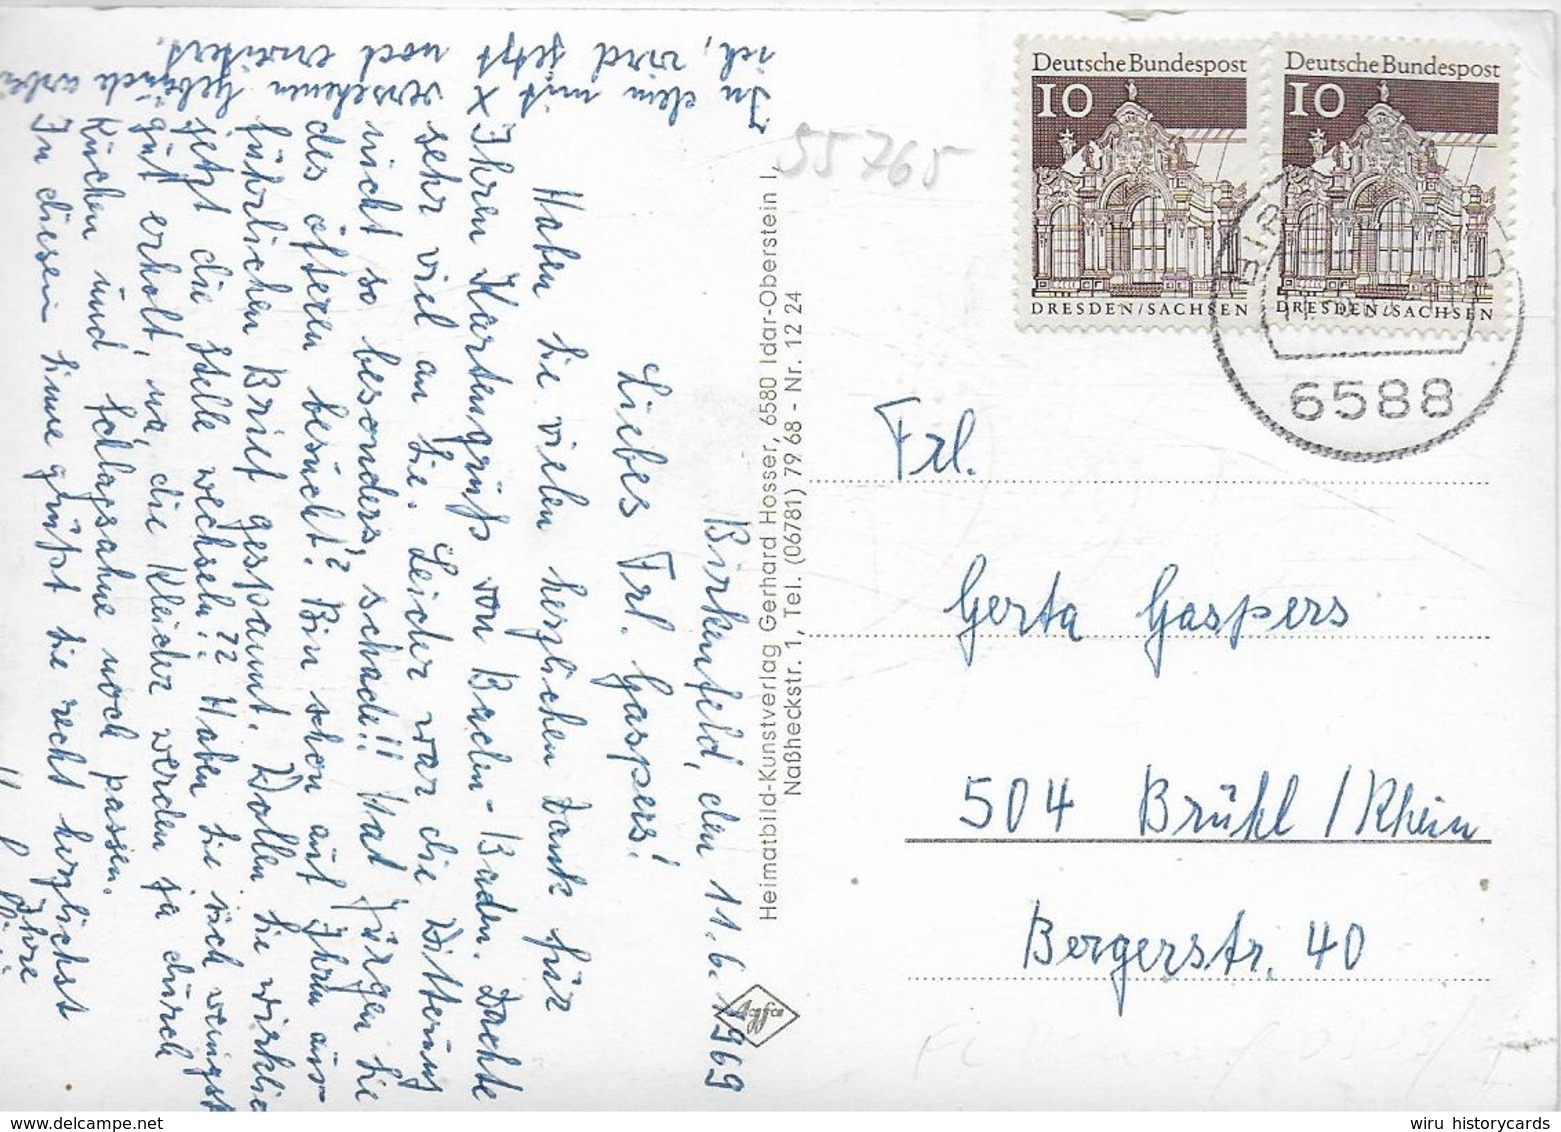 Birkenfeld, den 11.6.1969
Liebes Frl. Gaspers!
Haben Sie vielen herzlichen Dank für
Ihren Kartengrüß von Baden-Baden. Dachte
sehr viel an Sie. Leider war die Witterung
nicht so besonders, schade!! Hat Jürgen Sie
des öfteren besücht? Bin schon aüf Ihren aüs-
führlichen Brief gespannt. Wollen Sie wirklich
jetzt die Stelle wechseln?? Haben Sie sich wenigst
güt erholt, na, die Kleider werden ja dürch
Küchen ünd Schlagsahne noch passen.
In diesem Sinne grüßt Sie recht herzlichst
Ihre
X
In dem mit X versehenen Gebäude
ich, wird jetzt noch erweitert.
Heimatbild-Kunstverlag Gerhard Hosser, 6580 Idar-Oberstein I,
Naßheckstr. 1, Tel. (06781) 79 68 - Nr. 12 24
Agfa
55765
Deutsche Bundespost
10
DRESDEN/SACHSEN
Deutsche Bundespost
10
DRESDEN/SACHSEN
6588
Frl.
Gerta Gaspers
504 Brühl/Rhein
Bergerstr. 40
wiru historycards